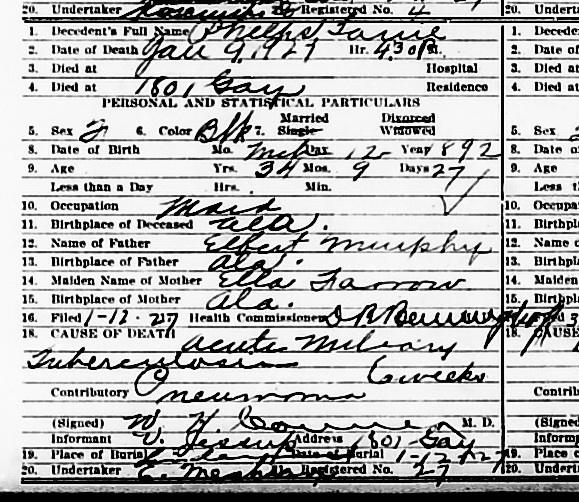 20. Undertaker Registered No. 4 20. Undert
1. Decedent's Full Name Phelps Fannie 1. Decede
2. Date of Death Jan 9, 1927 Hr. 4:30 P M. 2. Date of
3. Died at Hospital 3. Died at
4. Died at 1801 Gay Residence 4. Died at
PERSONAL AND STATISTICAL PARTICULARS
Married Divorced
5. Sex F 6. Color Blk 7. Single Widowed 5. Sex
8. Date of Birth Mo. Mch Day 12 Year 1892 8. Date of
9. Age Yrs. 34 Mos. 9 Days 27 9. Age
Less than a Day Hrs. Min. Less t
10. Occupation Maid 10. Occupa
11. Birthplace of Deceased Ala. 11. Birthpl
12. Name of Father Elbert Murphy 12. Name o
13. Birthplace of Father Ala. 13. Birthpl
14. Maiden Name of Mother Ella Farrow 14. Maiden
15. Birthplace of Mother Ala. 15. Birthpl
16. Filed 1-12-27 Health Commissioner 16.
18. CAUSE OF DEATH Acute Miliary 18. CAUSE
Tuberculosis 6 weeks
Contributory Pneumonia Contrib
(Signed) W. H. M. D. (Signed)
Informant V. Jessup Address 1801 Gay Inform
19. Place of Burial Date of Burial 1-12-27 19. Place o
20. Undertaker E. Registered No. 27 20. Undert